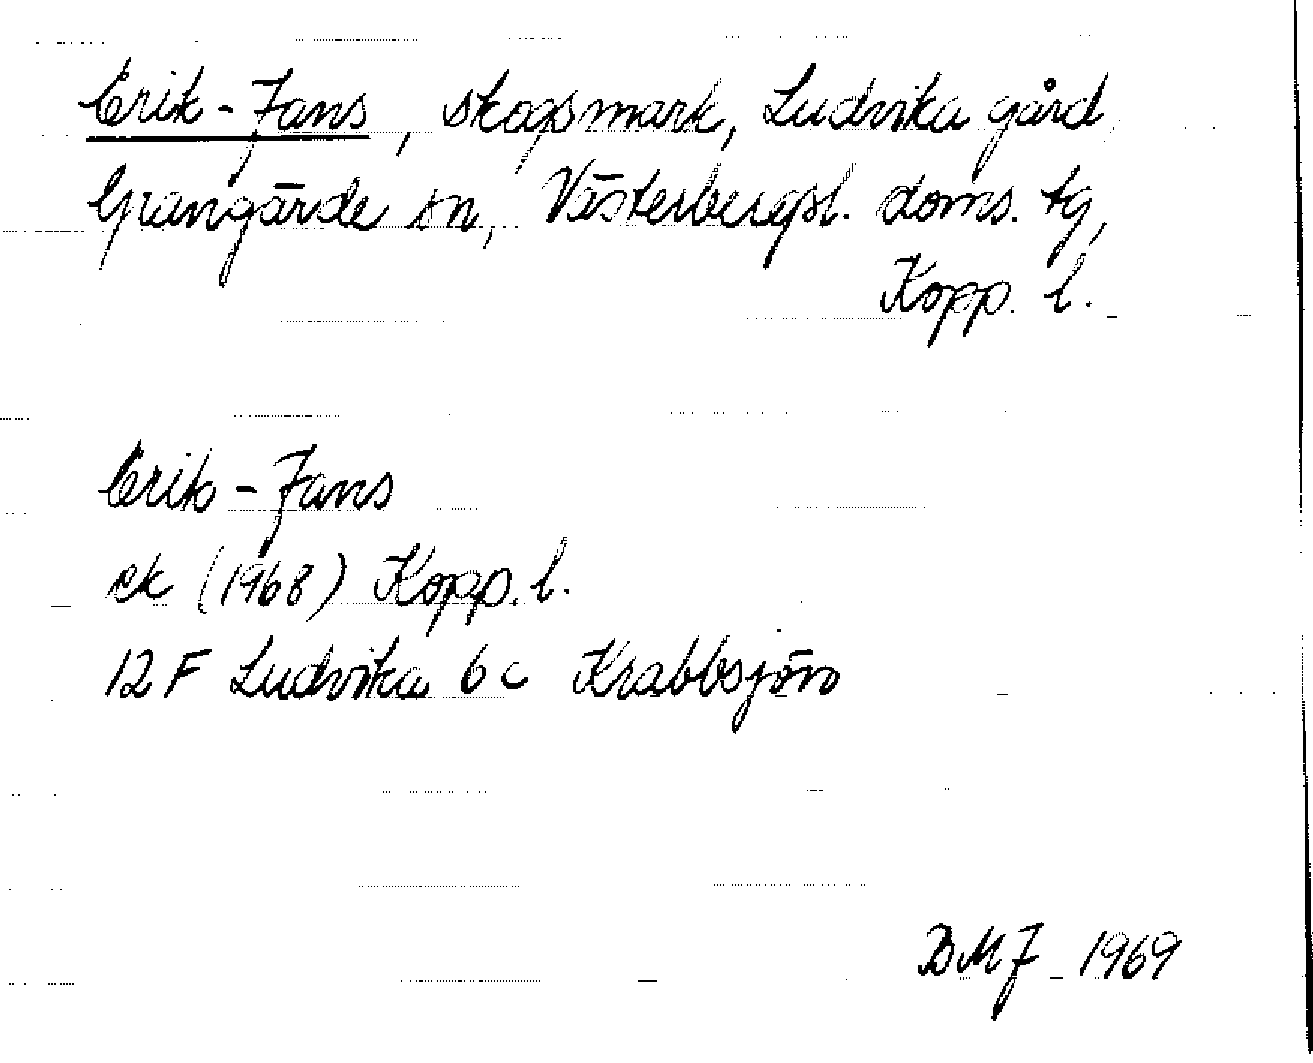 Erik-Jans, skogsmark, Ludvika gård,
Grangärde sn, Västerbergsl. doms. tg,
Kopp. l.
Erik-Jans
ek (1968) Kopp. l.
12 F Ludvika 6 c Krabbsjön
BMJ 1969